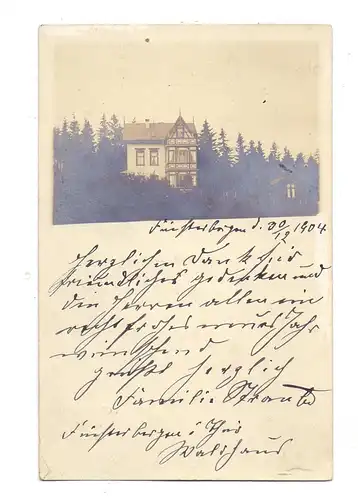 Finsterbergen d. 30/12 1904
Herzlichen Dank für
freundliches gedenken und
den Herren allen ein
recht frohes neues Jahr
wünschend
grüßt herzlich
Familie
Finsterbergen i/Thür
Waldhaus